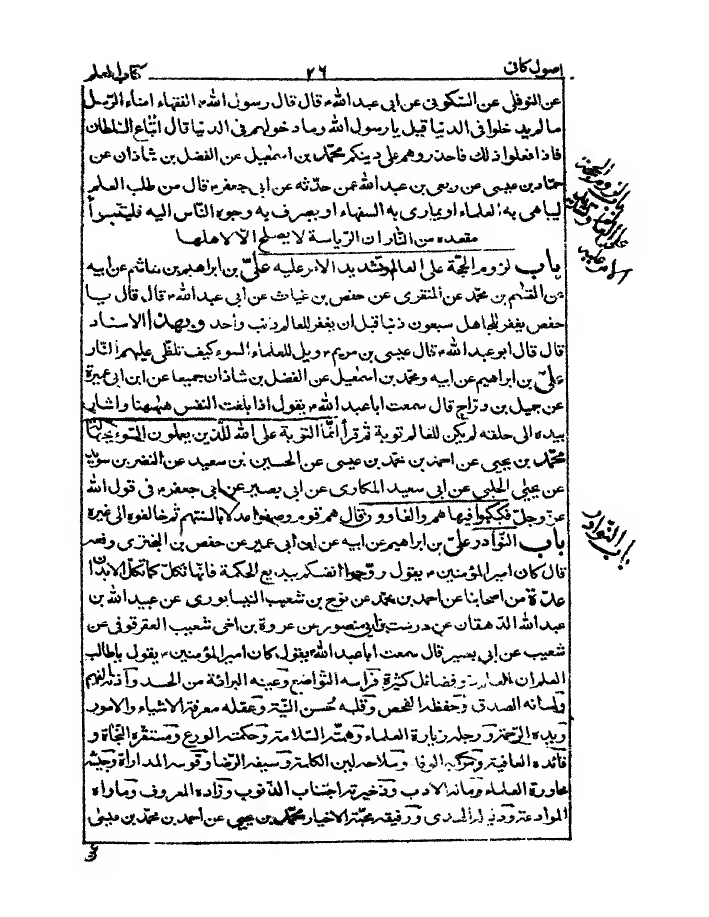 اصول كافى ٢٦ كتاب العلم
عن النوفلى عن السكونى عن ابى عبد الله ع قال قال رسول الله ص الفقهاء امناء الرسل
ما لم يدخلوا فى الدنيا قيل يا رسول الله وما دخولهم فى الدنيا قال اتباع السلطان
فاذا فعلوا ذلك فاحذروهم على دينكم محمد بن اسمعيل عن الفضل بن شاذان عن
حماد بن عيسى عن ربعى بن عبد الله عمن حدثه عن ابى جعفر ع قال من طلب العلم
ليباهى به العلماء او يمارى به السفهاء او يصرف به وجوه الناس اليه فليتبوأ
مقعده من النار ان الرياسة لا يصلح الا لاهلها
باب لزوم الحجة على العالم وتشديد الامر عليه على بن ابراهيم بن هاشم عن ابيه
عن القسم بن محمد عن المنقرى عن حفص بن غياث عن ابى عبد الله ع قال قال يا
حفص يغفر للجاهل سبعون ذنبا قبل ان يغفر للعالم ذنب واحد وبهذا الاسناد
قال قال ابو عبد الله ع قال عيسى بن مريم ع ويل للعلماء السوء كيف تلظى عليهم النار
على بن ابراهيم عن ابيه ومحمد بن اسمعيل عن الفضل بن شاذان جميعا عن ابن ابى عميرة
عن جميل بن دراج قال سمعت ابا عبد الله ع يقول اذا بلغت النفس ههنا واشار
بيده الى حلقه لم يكن للعالم توبة ثم قرأ انما التوبة على الله للذين يعملون السوء بجهالة
محمد بن يحيى عن احمد بن محمد بن عيسى عن الحسين بن سعيد عن النضر بن سويد
عن يحيى الحلبى عن ابى سعيد المكارى عن ابى بصير عن ابى جعفر ع فى قول الله
عز وجل فكبكبوا فيها هم والغاوون قال هم قوم وصفوا عدلا بالسنتهم ثم خالفوه الى غيره
باب النوادر على بن ابراهيم عن ابيه عن ابن ابى عمير عن حفص بن البخترى رفعه
قال كان امير المؤمنين ع يقول روحوا انفسكم ببديع الحكمة فانها تكل كما تكل الابدان
عدة من اصحابنا عن احمد بن محمد عن نوح بن شعيب النيسابورى عن عبيد الله بن
عبد الله الدهقان عن درست بن ابى منصور عن عروة بن اخى شعيب العقرقوفى عن
شعيب عن ابى بصير قال سمعت ابا عبد الله ع يقول كان امير المؤمنين ع يقول يا طالب
العلم ان العلم ذو فضائل كثيرة فرأسه التواضع وعينه البرائة من الحسد واذنه الفهم
ولسانه الصدق وحفظه الفحص وقلبه حسن النية وعقله معرفة الاشياء والامور
ويده الرحمة ورجله زيارة العلماء وهمته السلامة وحكمته الورع ومستقره النجاة و
قائده العافية ومركبه الوفا وسلاحه لين الكلمة وسيفه الرضا وقوسه المداراة وجيشه
محاورة العلماء وماله الادب وذخيرته اجتناب الذنوب وزاده المعروف وماواه
الموادعة ودليله الهدى ورفيقه محبة الاخيار محمد بن يحيى عن احمد بن محمد بن عيسى
باب لزوم الحجة
على العالم وتشديد
الامر عليه
باب النوادر